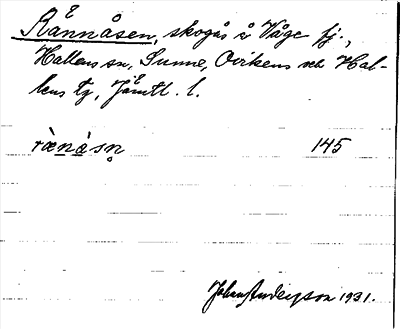 Rånnåsen, skogås å Våge fj.,
Hallens sn, Sunne, Ovikens och Hal-
lens tg, Jämtl. l.
ràe̠n̠à̠sn̥ 145
Johan Anderzson 1931.